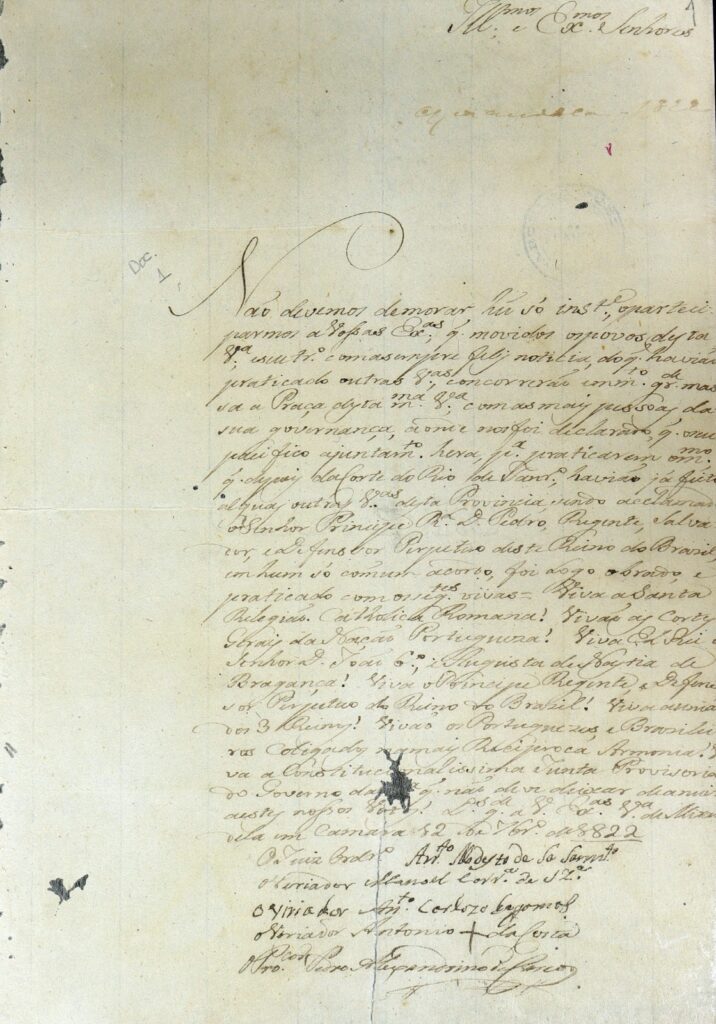 Ill.mos e Ex.mos Senhores
1822
Doc.
1
Não devemos demorar hũ só inst.e, o partici
parmos a Vossas Ex.as q. movidos os povos desta
V.a e seu tr.o com a sempre feliz noticia, do q. havião
praticado outras V.as, concorrerão em m.to gr.de mas
sa a Praça desta m.ma V.a com as mais pessoas da
sua governança, aonde nos foi declarado, q. o seu
pacifico ajuntam.to hera, p.a praticarem o m.mo
q. depois da Corte do Rio de Janr.o, havião já feito
alguas outras V.as desta Provincia, sendo acclamado
o Senhor Principe R.l D. Pedro, Regente, Salva
dor, e Defensor Perpetuo deste Reino do Brasil,
em hum só comum acordo, foi logo obrado, e
praticado com os seg.tes vivas = Viva a Santa
Relegião Catholica Romana! Vivão as Cortes
Gerais da Nação Portugueza! Viva El Rei o
Senhor D. João 6.o, e Augusta de Nastia de
Bragança! Viva o Principe Regente, e Defen
sor Perpetuo do Reino do Brazil! Viva a união
dos 3 Reinos! Vivão os Portuguezes e Brasilei
ros Coligados na mais Reciproca Armonia! Vi
va a Constitucionalissima Junta Provisoria
do Governo da q. não deve deixar de anuir
a estes nossos Votos! D.s g.de a V. Ex.as V.a de
em Camara 12 de 8br.o de 1822
O Juiz Ordr.o Ant.o Modesto de Sa Sarm.to
O Veriador Manoel Corr.a de Sz.a
O Viriador An.to Cardozo
O Veriador Antonio + da Costa
O Pro.cor Pedro Alexandrino